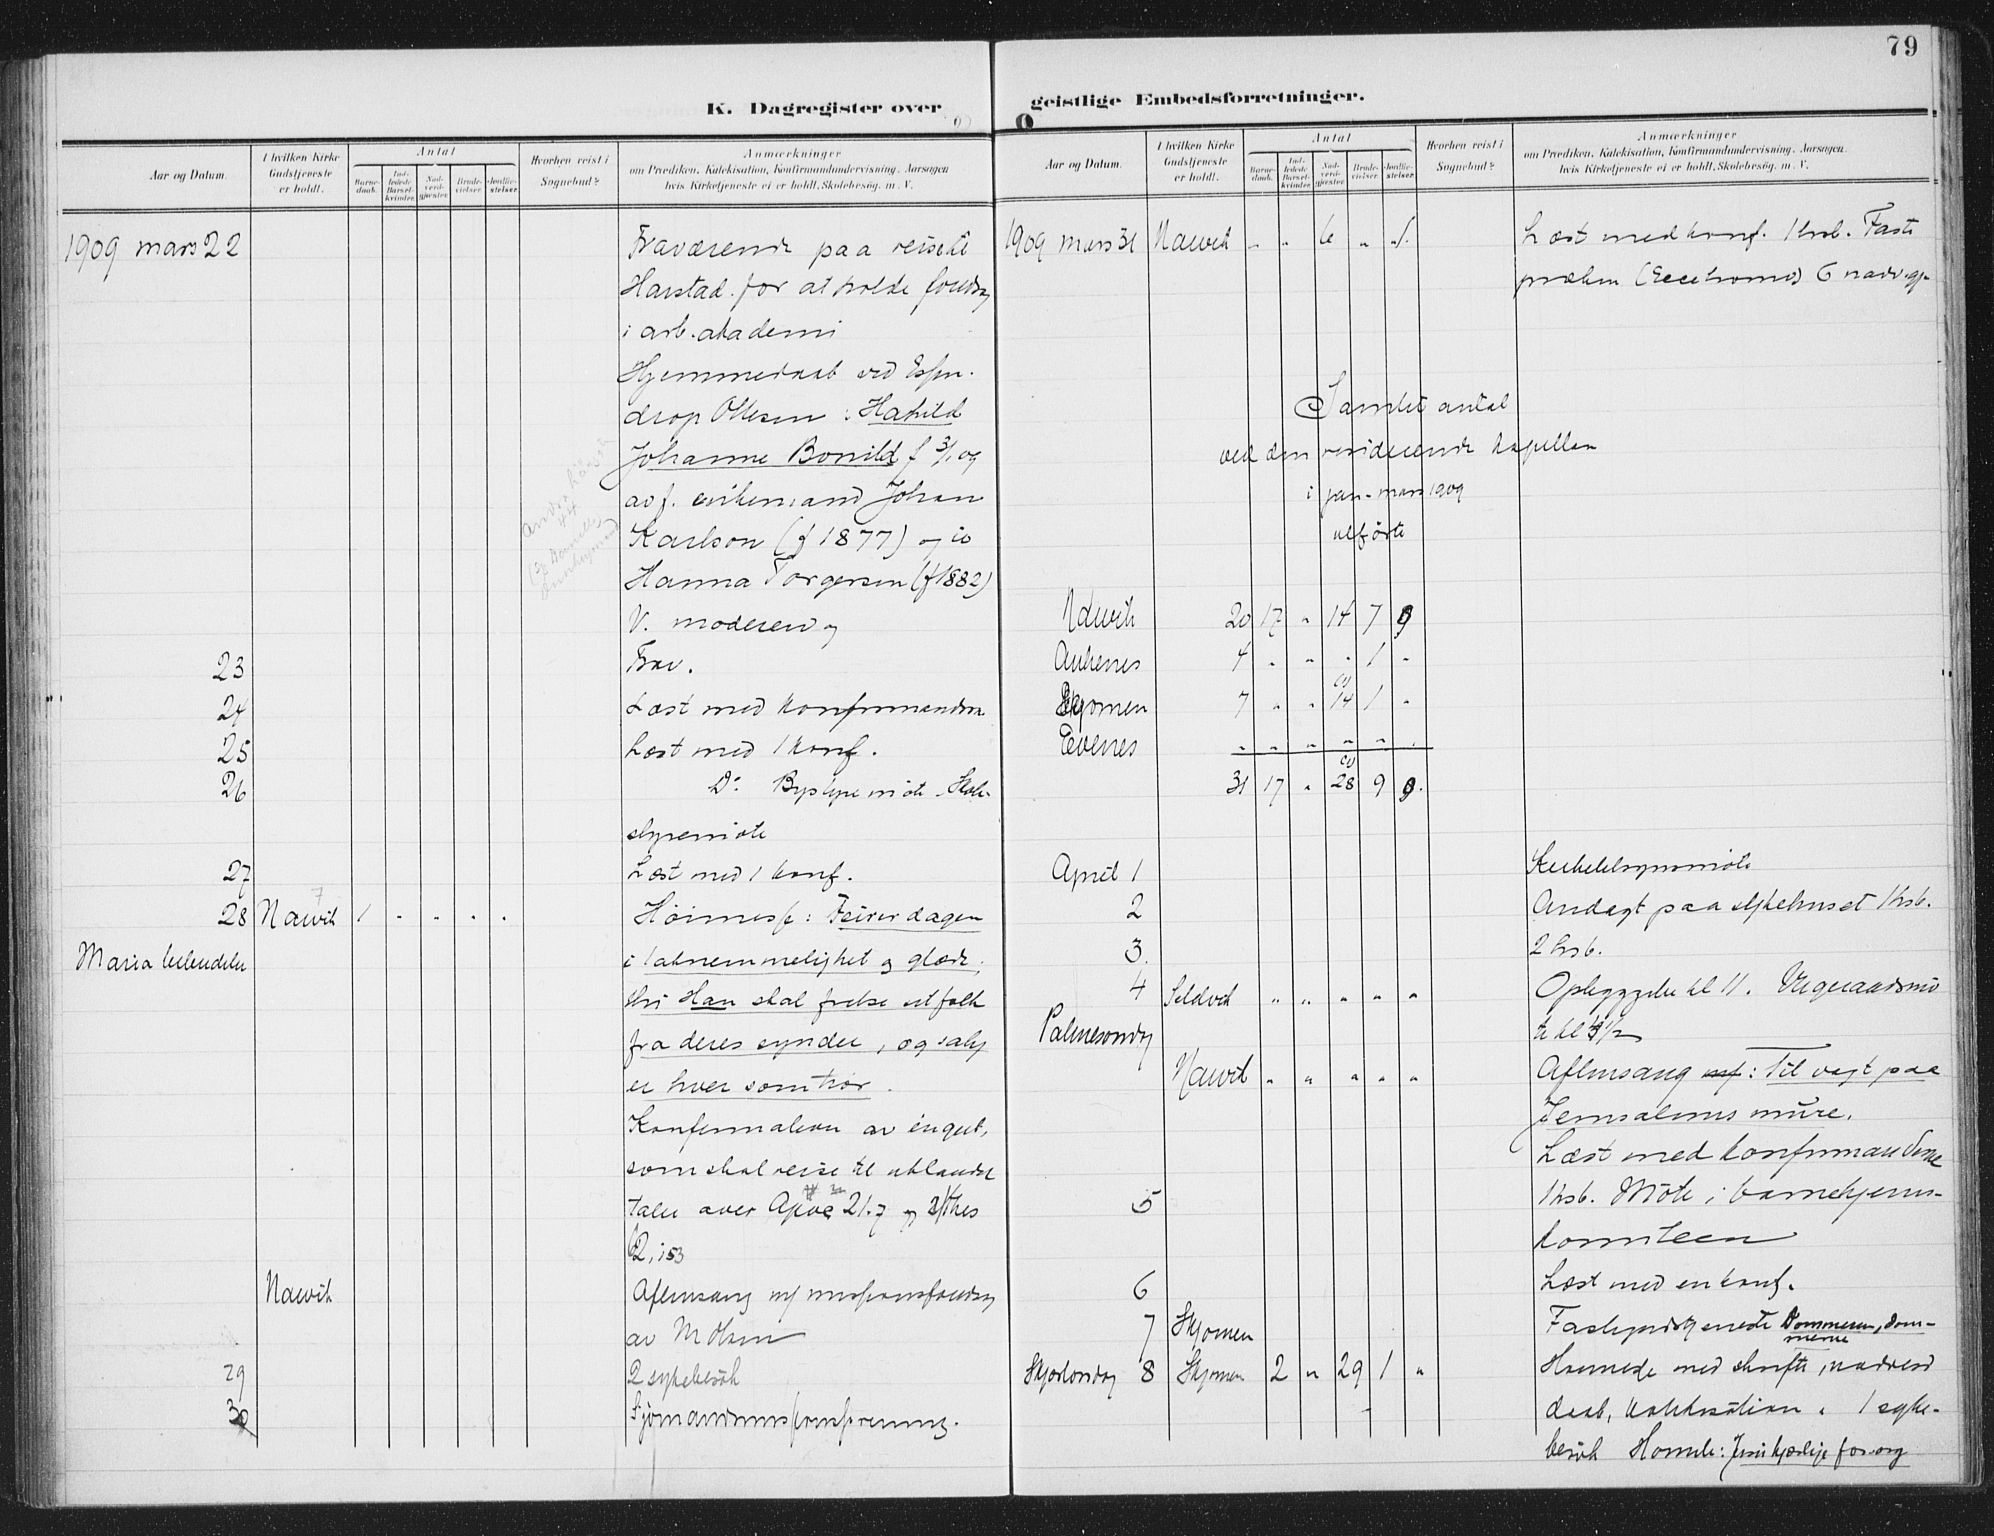 79
K. Dagregister over
geistlige Embedsforretninger.
Aar og Datum.
I hvilken Kirke Gudstjeneste er holdt.
Antal
Barne-daab.
Ind-ledede Barsel-kvinder.
Nad-verd-gjæster.
Brude-vielser.
Jordfæ-stelser.
Hvorhen reist i Sognebud?
Anmærkninger
om Prædiken, Katekisation, Konfirmandundervisning, Aarsagen
hvis Kirketjeneste ei er holdt, Skolebesøg. m. V.
1909 mars 22
Fraværende paa reise til
Harstad for at holde foredrag
i arb. akademi
Hjemmedaab ved
drop Ottesen : Hahild
Johanne Bonild f 3/1 og
av f. Johan
Karlson (f 1877) og
Hanna Torgersen (f 1882)
V. moderen og
23 Frav.
24 Læst med konfirmandene
25 Læst med 1 konf.
26 Do Bystyremøte. Skole-
styremøte
27 Læst med 1 konf.
28 Narvik 1 " " " " Høimesse: Feirer dagen
Maria bebudelse i taknemmelighet og glæde,
thi Han skal frelse sit folk
fra deres synder, og salig
er hver som tror.
Konfirmation av en gut,
som skal reise til utlandet
taler over Apoc 21.7 og 2 Thes
Narvik Aftensang m/ missionsforedrag
av M Olsen
29 2 sykebesøk
30 Sjømandsmissionsforening.
Aar og Datum.
I hvilken Kirke Gudstjeneste er holdt.
Antal
Barne-daab.
Ind-ledede Barsel-kvinder.
Nad-verd-gjæster.
Brude-vielser.
Jordfæ-stelser.
Hvorhen reist i Sognebud?
Anmærkninger
om Prædiken, Katekisation, Konfirmandundervisning, Aarsagen
hvis Kirketjeneste ei er holdt, Skolebesøg. m. V.
1909 mars 31 Narvik " " 6 " " Læst med konf. 1 hsb. Faste
præken (Ecce homo) 6 nadv.gj.
Samlet antal
ved den residerende kapellan
i jan-mars 1909
utførte
Narvik 20 17 " 14 7 9
Ankenes 4 " " " 1 "
Skjomen 7 " " 14 1 "
Evenes " " " " " "
31 17 " 28 9 9.
April 1 Kirketilsynsmøte
2 Andagt paa sykehuset 1 hsb.
3. 2 hsb.
4 Sildvik " " " " " Oplæggelse kl 11. Vergeraadsmø
Palmesøndag te kl
Narvik " " " " " Aftensang : Til vagt paa
Jerusalems mure.
Læst med konfirmandene
5 1 hsb. Møte i barnehjems-
komiteen
6 Læst med en konf.
7 Skjomen Fastegudstjeneste Dommeren, dom-
merne
Skjærtorsdag 8 Skjomen 2 " 29 1 " Høimesse med skrifte, nadverd
daab, katekisation. 1 syke-
besøk Homili: Jesu kjærlige forsorg